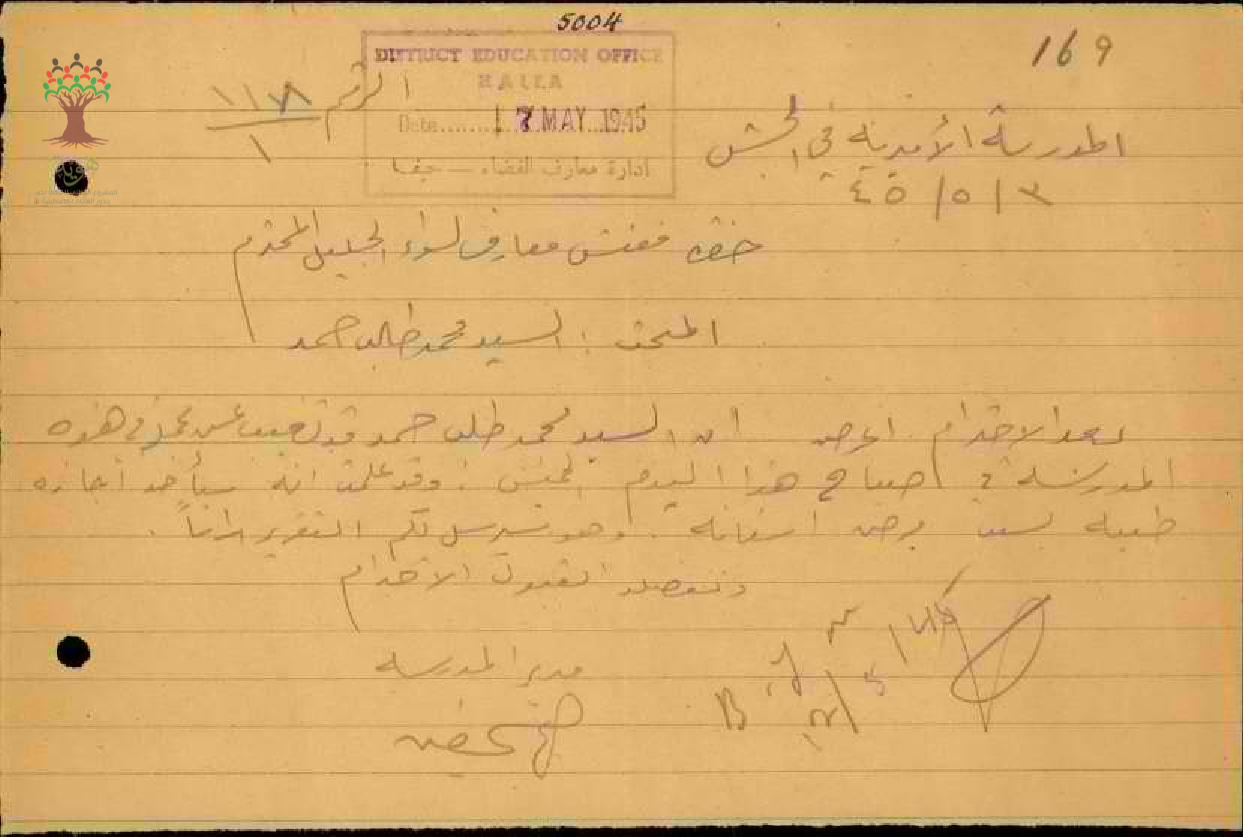 5004
169
DISTRICT EDUCATION OFFICE
HAIFA
Date 17 MAY 1945
ادارة معارف القضاء — حيفا
الرقم ١١٨/١
المدرسة الأميرية في الجش
٣/٥/٤٥
حضرة مفتش معارف لواء الجليل المحترم
السيد محمد طلب حمد
بعد الاحترام اعرض ان السيد محمد طلب حمد قد تغيب عن عمله في هذه
المدرسة في صباح هذا اليوم الخميس. وقد علمت انه سيأخذ اجازة
طبية بسبب مرض اسنانه. وهو سيرسل لكم التقرير
وتفضلوا بقبول الاحترام
مدير المدرسة